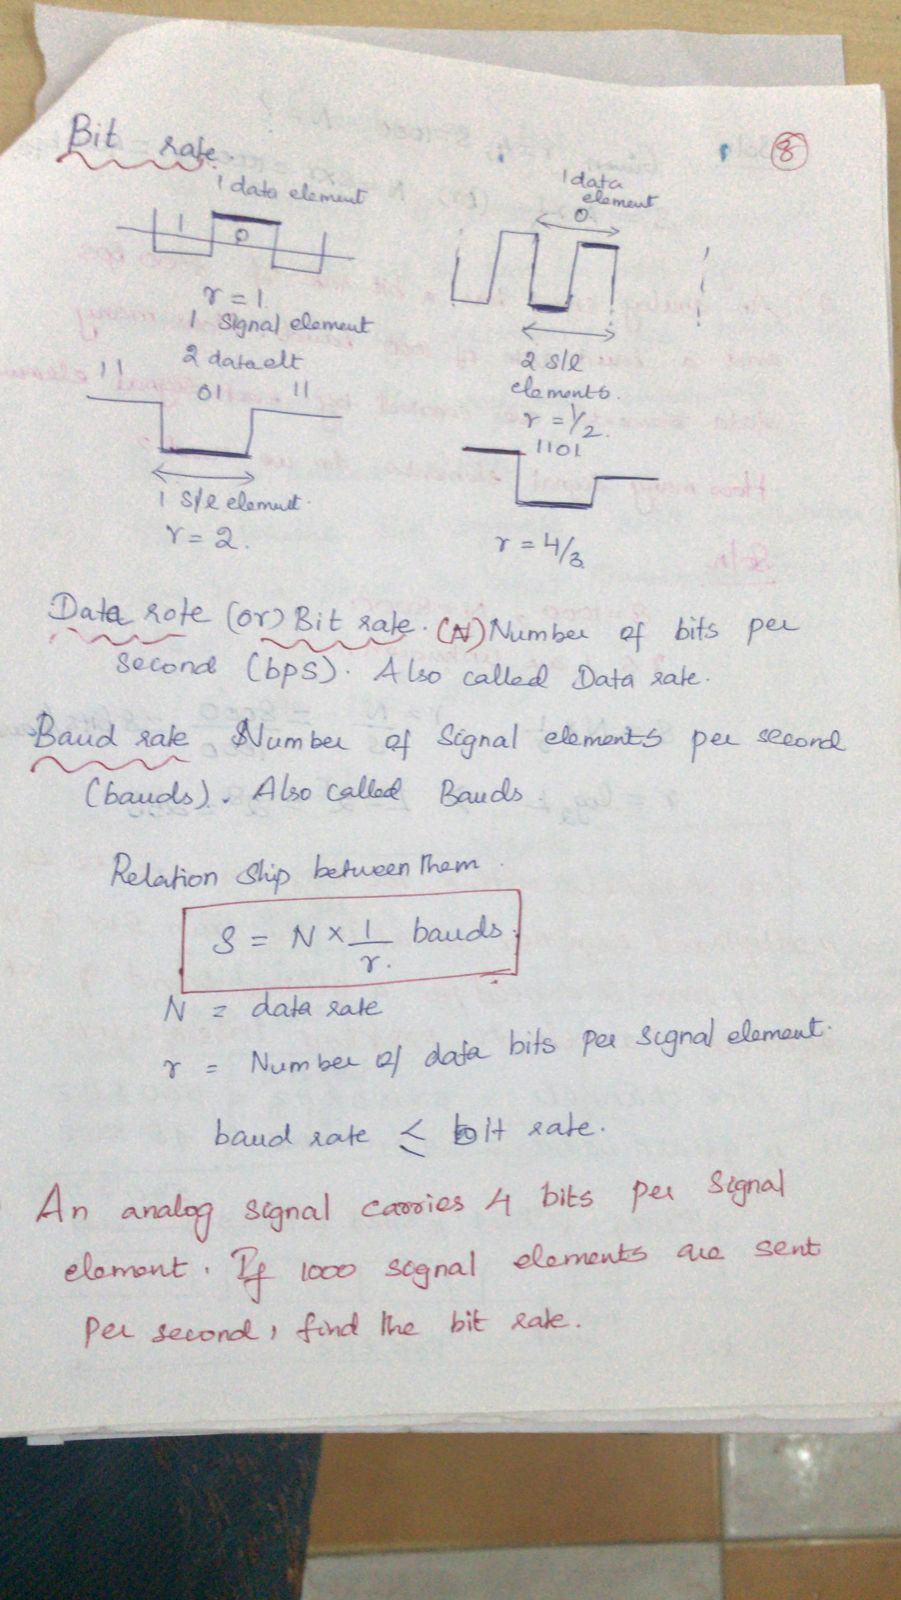 Bit rate.
8
1 data element
1 0
r = 1.
1 signal element
1 data
element
0
2 s/l
elements.
r = 1/2.
2 data elt
11 01 11
1 s/l element.
r = 2.
1101
r = 4/3
Data rate (or) Bit rate. (N) Number of bits per
second (bps). Also called Data rate.
Baud rate Number of signal elements per second
(bauds). Also called Bauds
Relation ship between them.
S = N × 1/r. bauds.
N = data rate
r = Number of data bits per signal element.
baud rate ≤ bit rate.
An analog signal carries 4 bits per signal
element. If 1000 signal elements are sent
per second, find the bit rate.